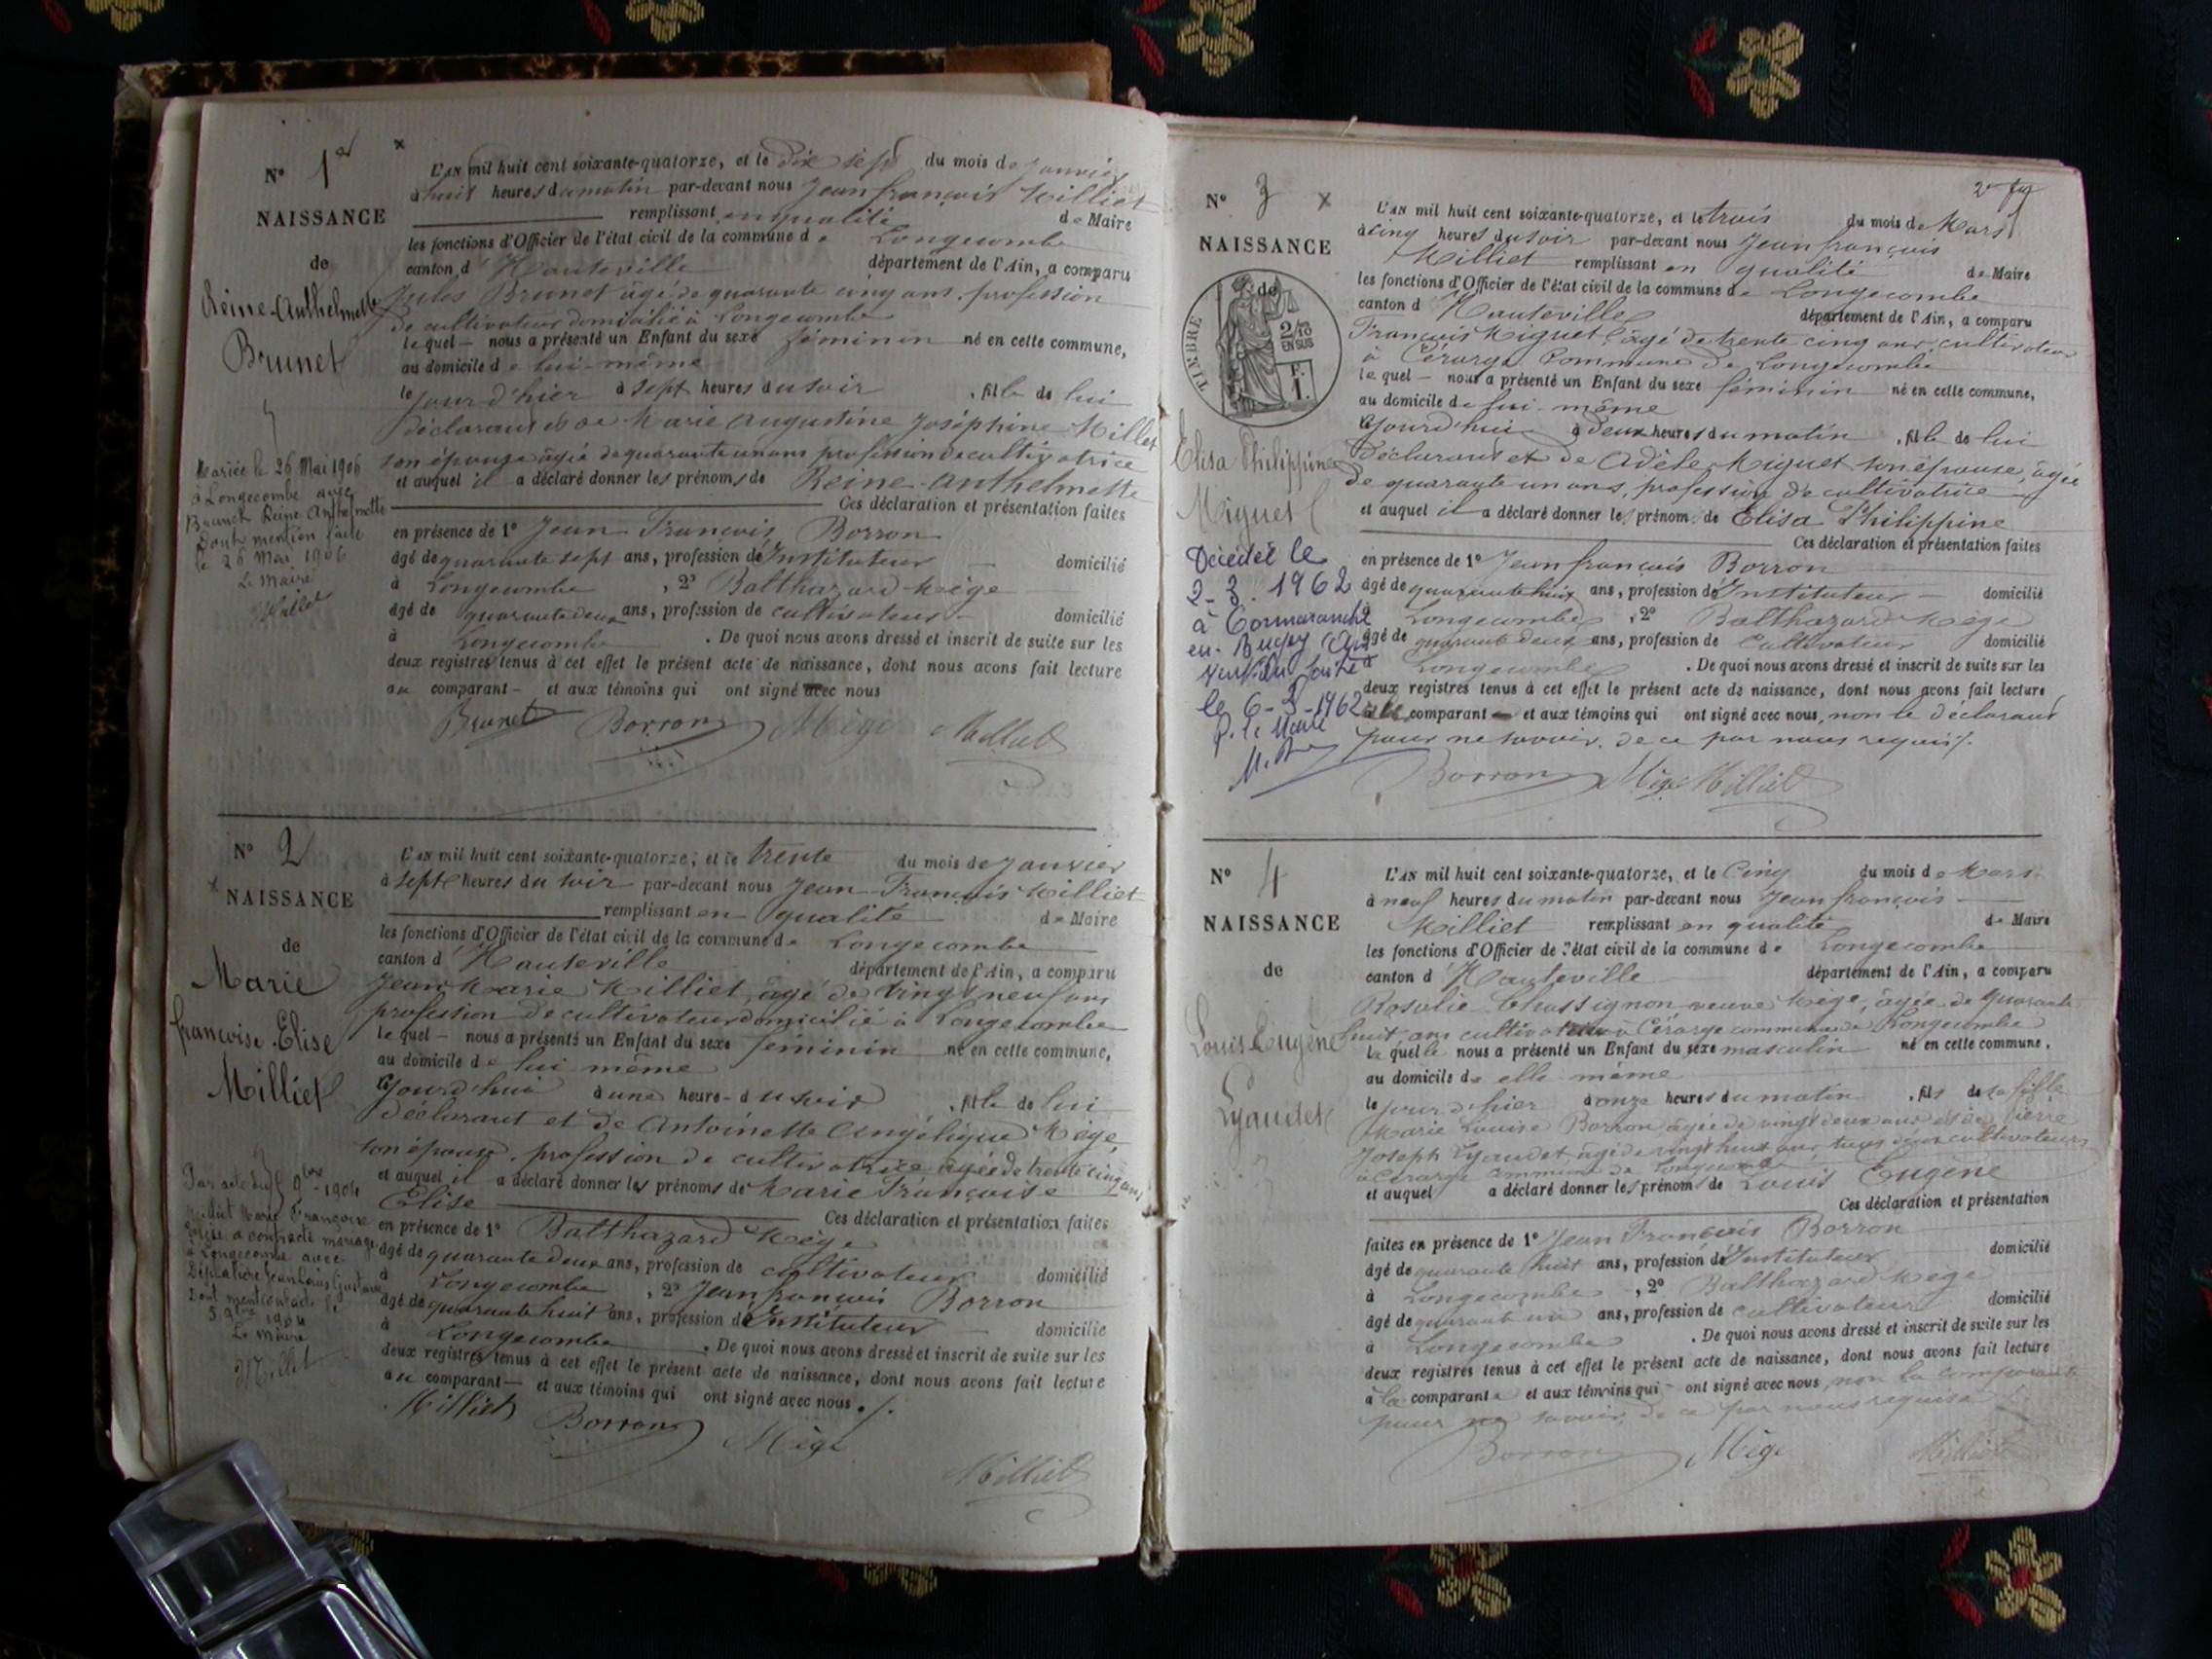 N° 1er
NAISSANCE
de
Reine-Anthelmette
Brunet
Mariée le 26 Mai 1906
à Longecombe avec
Brunet Reine Anthelmette
Dont mention faite
le 26 Mai 1906
Le maire
Millet
L'AN mil huit cent soixante-quatorze, et le dix sept du mois de Janvier
à huit heures du matin par-devant nous Jean françois Milliet
remplissant en qualité de Maire
les fonctions d'Officier de l'état civil de la commune de Longecombe
canton d'Hauteville département de l'Ain, a comparu
Jules Brunet âgé de quarante cinq ans, profession
de cultivateur domicilié à Longecombe
lequel — nous a présenté un Enfant du sexe féminin né en cette commune,
au domicile de lui-même
le jour d'hier à sept heures du soir, fille de lui
déclarant et de Marie Augustine Joséphine Millet
son épouse âgée de quarante un ans profession de cultivatrice
et auquel il a déclaré donner les prénoms de Reine-Anthelmette
Ces déclaration et présentation faites
en présence de 1° Jean François Borron
âgé de quarante sept ans, profession d'Instituteur domicilié
à Longecombe, 2° Balthazard Mège
âgé de quarante deux ans, profession de cultivateur domicilié
à Longecombe. De quoi nous avons dressé et inscrit de suite sur les
deux registres tenus à cet effet le présent acte de naissance, dont nous avons fait lecture
au comparant - et aux témoins qui ont signé avec nous
Brunet Borron Mège Milliet
N° 2
NAISSANCE
de
Marie
françoise-Elise
Milliet
Par acte du 5 9bre 1904
Milliet Marie Françoise
Elise a contracté mariage
à Longecombe avec
Dont mention faite le
5 9bre 1904
Le maire
Millet
L'AN mil huit cent soixante-quatorze, et le trente du mois de Janvier
à sept heures du soir par-devant nous Jean-François Milliet
remplissant en qualité de Maire
les fonctions d'Officier de l'état civil de la commune de Longecombe
canton d'Hauteville département de l'Ain, a comparu
Jean Marie Milliet, âgé de vingt neuf ans
profession de cultivateur domicilié à Longecombe
lequel — nous a présenté un Enfant du sexe féminin né en cette commune,
au domicile de lui même
aujourd'hui à une heure - du soir, fille de lui
déclarant et de Antoinette Angélique Mège
son épouse, profession de cultivatrice âgée de trente cinq ans,
et auquel il a déclaré donner les prénoms de Marie Françoise
Elise Ces déclaration et présentation faites
en présence de 1° Balthazard Mège
âgé de quarante deux ans, profession de cultivateur domicilié
à Longecombe, 2° Jean françois Borron
âgé de quarante huit ans, profession d'Instituteur domicilié
à Longecombe. De quoi nous avons dressé et inscrit de suite sur les
deux registres tenus à cet effet le présent acte de naissance, dont nous avons fait lecture
au comparant — et aux témoins qui ont signé avec nous./.
Milliet Borron Mège
Milliet
2e
N° 3
NAISSANCE
de
TIMBRE
2/10 EN SUS
F. 1.
Elisa Philippine
Miguet
Décédée le
2-3-1962
à Cormaranche
en-Bugey (Ain)
le 6-3-1962
P. le Maire
L'AN mil huit cent soixante-quatorze, et le trois du mois de Mars
à cinq heures du soir par-devant nous Jean françois
Milliet remplissant en qualité de Maire
les fonctions d'Officier de l'état civil de la commune de Longecombe
canton d'Hauteville département de l'Ain, a comparu
François Miguet, âgé de trente cinq ans, cultivateur
à Cérarge Commune de Longecombe
lequel — nous a présenté un Enfant du sexe féminin né en cette commune,
au domicile de lui-même
aujourd'hui à deux heures du matin, fille de lui
déclarant et de Adèle Miguet son épouse, âgée
de quarante un ans, profession de cultivatrice
et auquel il a déclaré donner les prénom. de Elisa Philippine
Ces déclaration et présentation faites
en présence de 1° Jean françois Borron
âgé de quarante huit ans, profession d'Instituteur — domicilié
à Longecombe, 2° Balthazard Mège
âgé de quarante deux ans, profession de Cultivateur domicilié
à Longecombe. De quoi nous avons dressé et inscrit de suite sur les
deux registres tenus à cet effet le présent acte de naissance, dont nous avons fait lecture
comparant — et aux témoins qui ont signé avec nous, non le déclarant
pour ne savoir, de ce par nous requis./.
Borron Mège Milliet
N° 4
NAISSANCE
de
Louis Eugène
Lyaudet
L'AN mil huit cent soixante-quatorze, et le Cinq du mois de Mars
à neuf heures du matin par-devant nous Jean françois
Milliet remplissant en qualité de Maire
les fonctions d'Officier de l'état civil de la commune de Longecombe
canton d'Hauteville département de l'Ain, a comparu
Rosalie Chassignon veuve Mège, âgée de quarante
huit ans à Cérarge commune de Longecombe
laquelle nous a présenté un Enfant du sexe masculin né en cette commune.
au domicile de elle-même
le jour d'hier à onze heures du matin, fils de sa fille
Marie Louise Borron âgée de vingt deux ans et de Pierre
Joseph Lyaudet âgé de vingt huit ans tous deux cultivateurs
à Cérarge commune de Longecombe
et auquel a déclaré donner les prénoms de Louis Eugène
Ces déclaration et présentation
faites en présence de 1° Jean François Borron
âgé de quarante huit ans, profession d'Instituteur domicilié
à Longecombe, 2° Balthazard Mège
âgé de quarante ans, profession de cultivateur domicilié
à Longecombe. De quoi nous avons dressé et inscrit de suite sur les
deux registres tenus à cet effet le présent acte de naissance, dont nous avons fait lecture
à la comparante et aux témoins qui - ont signé avec nous, non la comparante
pour ne savoir, de ce par nous requise
Borron Mège Milliet